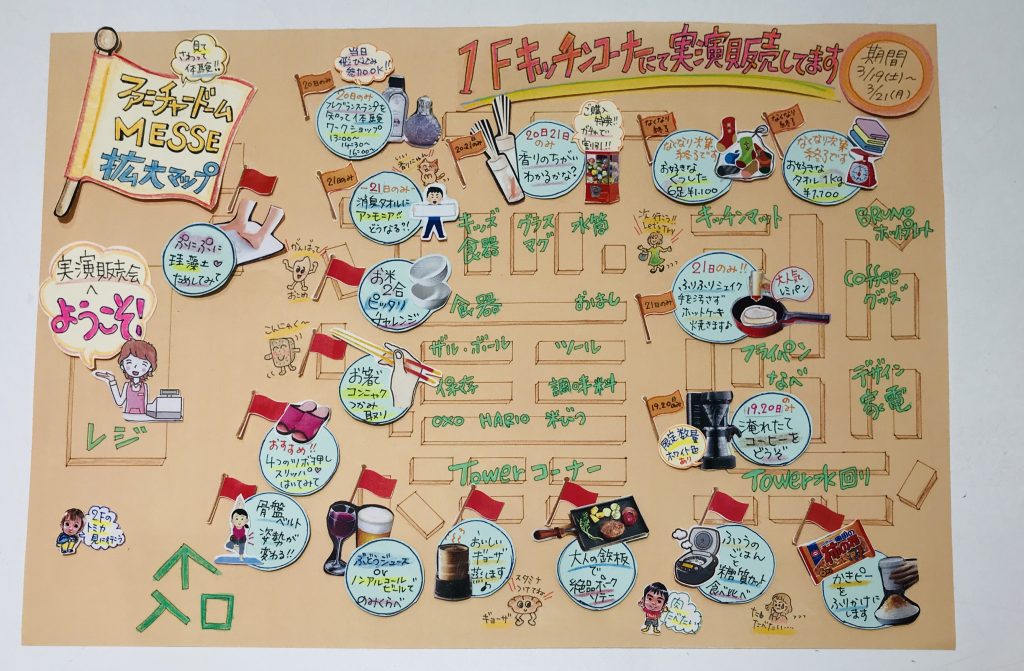 見て
さわって
体験!!
ファニチャードーム
MESSE
拡大マップ
1Fキッチンコーナーにて実演販売してます
期間
3/19(土)～
3/21(月)
当日
飛び込み
参加OK!!
20日のみ
フレグランスランプを
使って体験
ワークショップ
13:00～
14:30～
16:00～
20.21のみ
20日21日
のみ
香りのちがい
わかるかな?
ご購入
特典!!
ガチャで
割引!!
なくなり
終了
なくなり次第
終了です
お好きな
くつした
6足¥1.100
なくなり
終了
なくなり次第
終了です
お好きな
タオル1kg
¥7.700
21日のみ
-21日のみ-
消臭タオルに
アンモニア!!
どうなる?!
ぷにぷに
珪藻土
ためしてみて
がんばって
おこめ
お米
2合
ピッタリ
チャレンジ
キッズ
食器
グラス
マグ
水筒
キッチンマット
BRUNO
ホットプレート
21日のみ
21日のみ!!
ふりふりシェイク
手を汚さず
ホットケーキ
焼きます♪
大人気
レミパン
Coffee
グッズ
食器
おはし
実演販売会
へ
ようこそ!
こんにゃく～
お箸で
コンニャク
つかみ
取り
ザル・ボール
ツール
フライパン
なべ
保存
調味料
デザイン
家電
OXO
HARIO
米びつ
19.20日のみ
限定数量
ホワイト色
あり
19.20日のみ
淹れたて
コーヒーを
どうぞ
レジ
おすすめ!!
4つのツボ押し
スリッパ
はいてみて
Towerコーナー
Tower水回り
2Fの
トミカ
見に行こう
骨盤
ベルト
姿勢が
変わる!!
ぶどうジュース
or
ノンアルコール
ビールで
のみくらべ
おいしい
ギョーザ
蒸します♪
スタミナ
つけてネ!!
ギョーザ
大人の鉄板
で
絶品ポーク
ソテー
肉
たべたい
ふつうの
ごはん
と
糖質カット
食べ比べ
たべたい....
かきピー
を
ふりかけに
します
入口